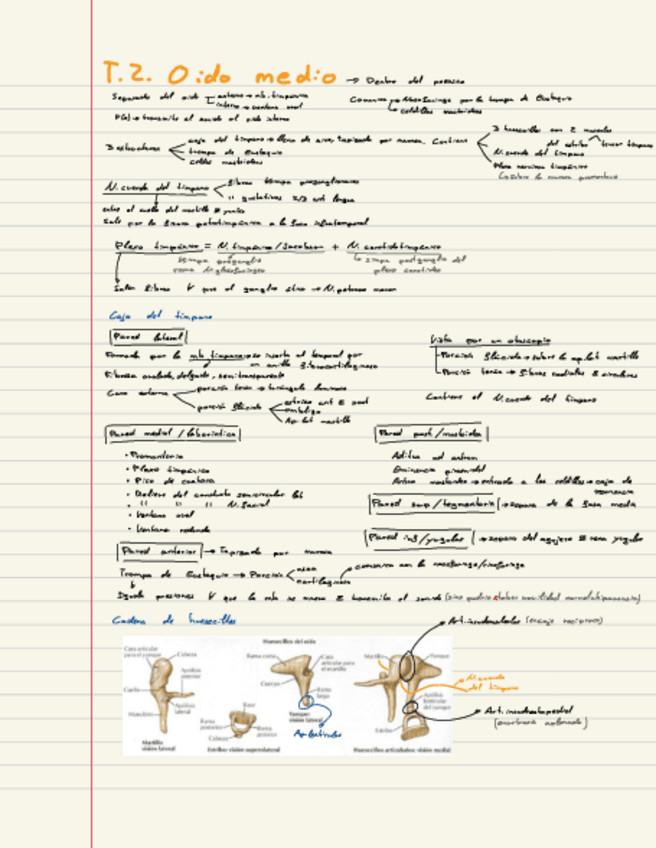 T.2. Oido medio → Dentro del peñasco
Separado del oido externo → mb. timpánica
interno → ventana oval
Comunica → Nasofaringe por la trompa de Eustaquio
celdillas mastoideas
F(x) → transmite el sonido al oido interno
3 estructuras
caja del timpano → llena de aire, tapizada por mucosa. Contiene
trompa de Eustaquio
celdas mastoideas
3 huesecillos con 2 musculos
del estribo
tensor timpano
N. cuerda del timpano
Plexo nervioso timpánico
N. cuerda del timpano
fibras parasimpa preganglionares
" gustativas 2/3 ant lengua
entre el cuello del martillo y yunque
Sale por la fisura petrotimpánica a la fosa infratemporal
Plexo timpánico = N. timpánico/Jacobson + N. caroticotimpánico
simpa postganglio del
rama N. glosofaringeo
plexo carotideo
Salen fibras que el ganglio ótico → N. petroso menor
Caja del timpano
Pared lateral
Formada por la mb timpánica → se inserta al temporal por
un anillo fibrocartilaginoso
Fibrosa ovalada, delgada, semitransparente
Cara externa
porción tensa → triangulo luminoso
porción fláccida
estrias ant y post
ombligo
Ap. lat martillo
Vista por un otoscopio
Porción fláccida → sobre la ap. lat martillo
Porción tensa → fibras radiales y circulares
Contiene el N. cuerda del timpano
Pared medial / laberintica
• Promontorio
• Plexo timpánico
• Pico de cuchara
• Relieve del conducto semicircular lat
• " " " N. facial
• Ventana oval
• Ventana redonda
Pared post/mastoidea
Aditus ad antrum
Eminencia piramidal
Antro mastoideo → entrada a las celdillas → caja de
resonancia
Pared sup/tegmentaria → separa de la fosa media
Pared inf/yugular → separa del agujero y vena yugular
Pared anterior → Tapizada por mucosa
Trompa de Eustaquio → Porción
osea
cartilaginosa
comunica con la nasofaringe/rinofaringe
Iguala presiones que la mb se mueva y transmita el sonido
Cadena de huesecillos
Art. incudomaleolar (encaje reciproco)
Huesecillos del oído
Cara articular para el yunque
Cabeza
Apófisis anterior
Cuello
Apófisis lateral
Manubrio
Martillo: visión lateral
Base
Rama posterior
Rama anterior
Cabeza
Estribo: visión superolateral
Rama corta
Cara articular para el martillo
Cuerpo
Rama larga
Yunque: visión lateral
Ap. lenticular
Martillo
Yunque
Apófisis lenticular del yunque
Estribo
Huesecillos articulados: visión medial
N. cuerda del timpano
Art. incudoestapedial